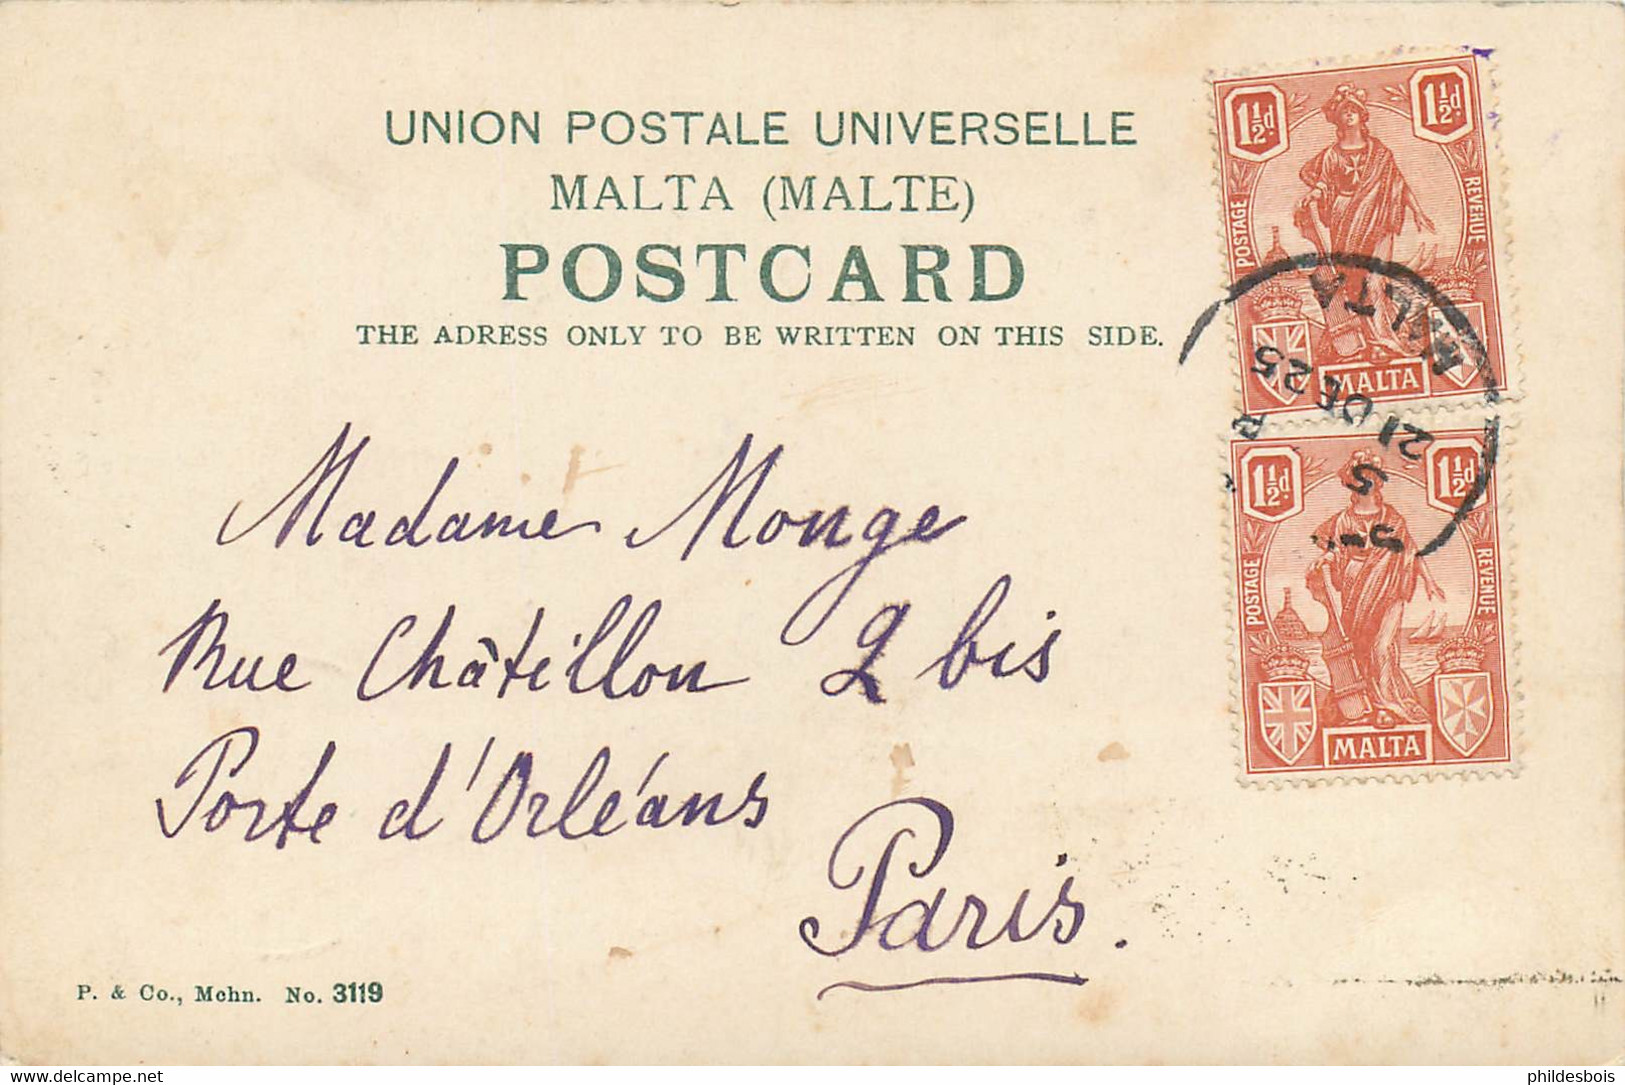 UNION POSTALE UNIVERSELLE
MALTA (MALTE)
POSTCARD
THE ADRESS ONLY TO BE WRITTEN ON THIS SIDE.
1½d 1½d
POSTAGE REVENUE
MALTA
MALTA
21 DE 25
5
1½d 1½d
POSTAGE REVENUE
MALTA
Madame Monge
Rue Châtillon 2 bis
Porte d'Orléans
Paris.
P. & Co., Mchn. No. 3119
www.delcampe.net
phildesbois